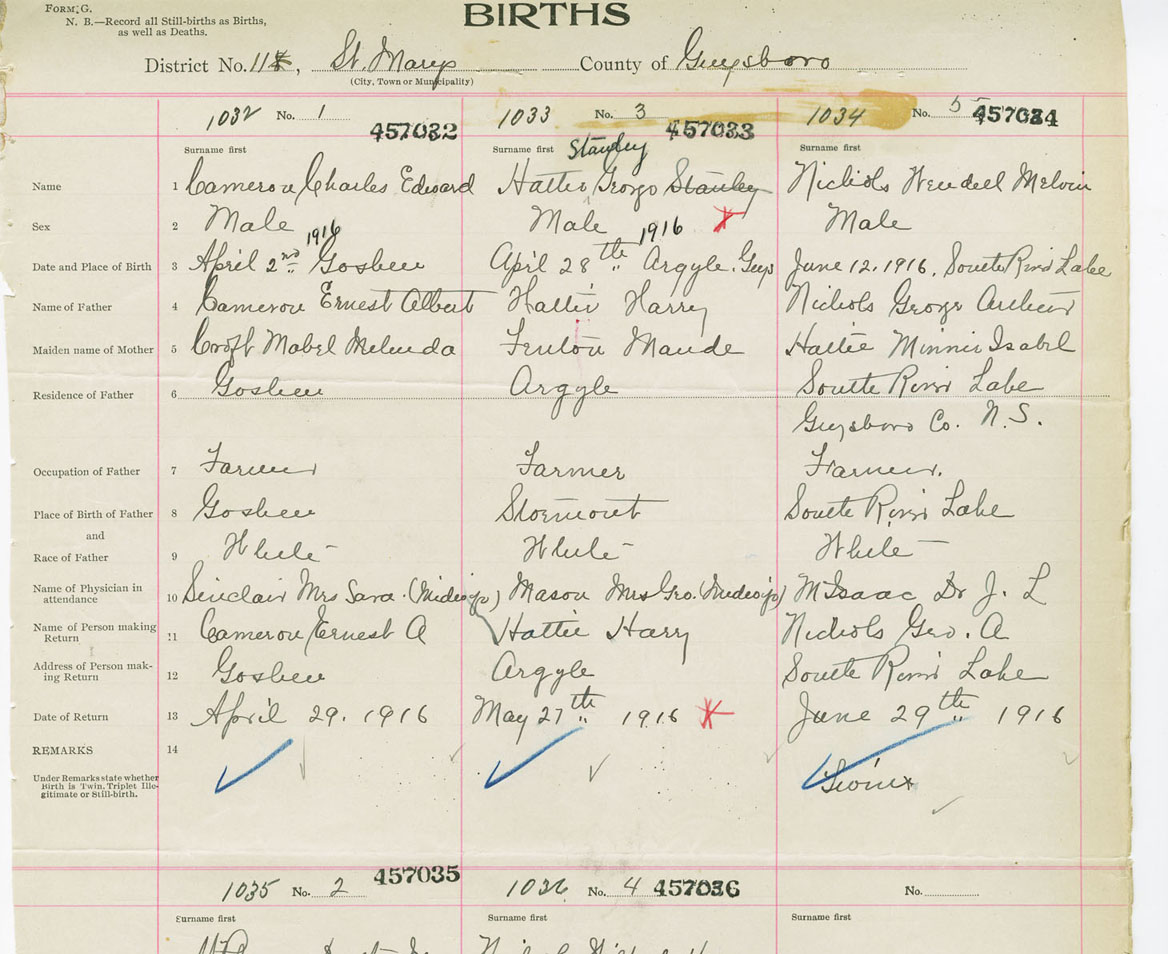 FORM G.
N. B.—Record all Still-births as Births,
as well as Deaths.
BIRTHS
District No. 11, St. Marys County of Guysboro
(City, Town or Municipality)
1032 No. 1 457032 1033 No. 3 457033 1034 No. 5 457034
Surname first Surname first Stanley Surname first
Name 1 Cameron Charles Edward Hattie George Stanley Nichols Wendell Melvin
Sex 2 Male Male Male
1916 1916
Date and Place of Birth 3 April 2nd Goshen April 28th Argyle. Guys June 12, 1916, South River Lake
Name of Father 4 Cameron Ernest Albert Hattie Harry Nichols George Arthur
Maiden name of Mother 5 Croft Mabel Melinda Fenton Maude Hattie Minnie Isabel
Residence of Father 6 Goshen Argyle South River Lake
Guysboro Co. N.S.
Occupation of Father 7 Farmer Farmer Farmer.
Place of Birth of Father 8 Goshen Stormont South River Lake
and
Race of Father 9 White White White
Name of Physician in
attendance 10 Sinclair Mrs Sara. Mason Mrs Geo. McIsaac Dr J. L
Name of Person making
Return 11 Cameron Ernest A Hattie Harry Nichols Geo. A
Address of Person mak-
ing Return 12 Goshen Argyle South River Lake
Date of Return 13 April 29. 1916 May 27th 1916 June 29th 1916
REMARKS 14
Under Remarks state whether
Birth is Twin, Triplet Ille-
gitimate or Still-birth.
1035 No. 2 457035 1036 No. 4 457036 No.
Surname first Surname first Surname first